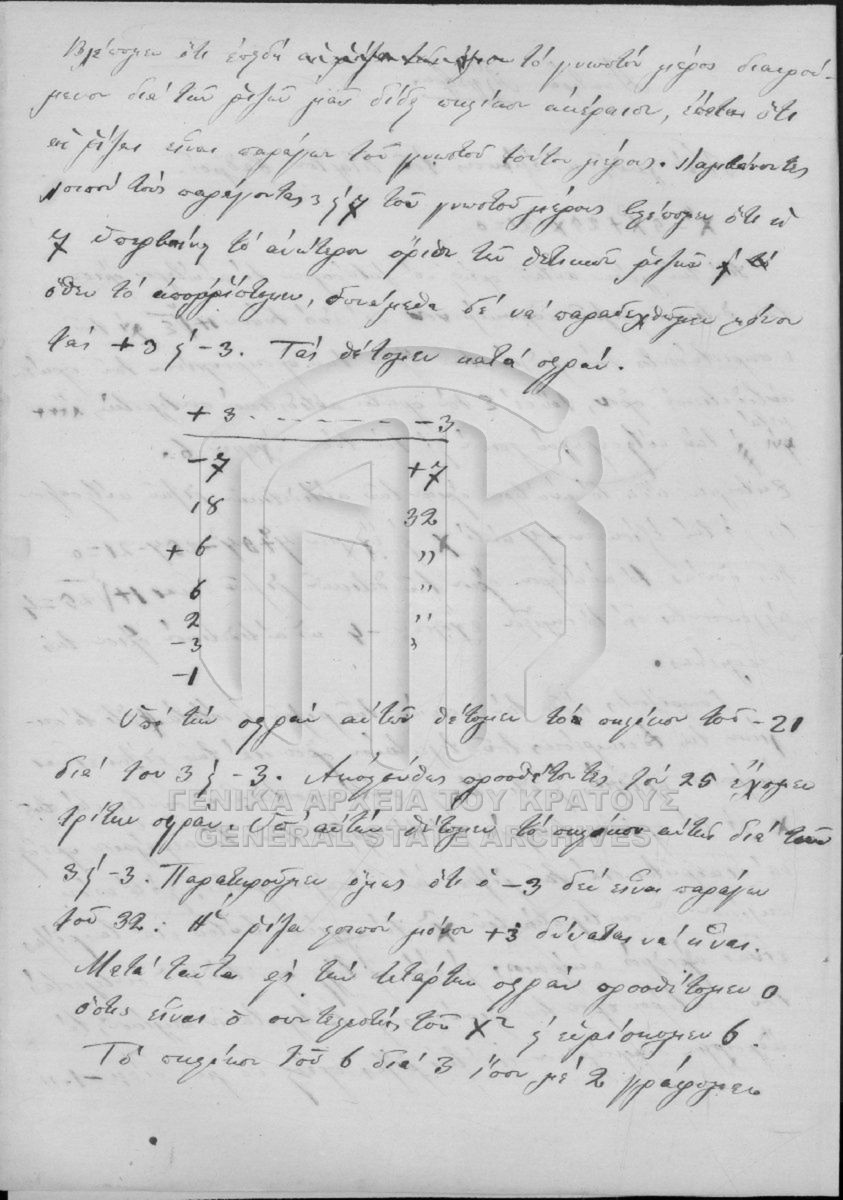 Βλέπομεν ὅτι ἐπειδὴ τὸ γνωστὸν μέρος διαιρού-
μενον διὰ τῶν ῥιζῶν μᾶς δίδῃ πηλίκον ἀκέραιον, ἕπεται ὅτι
αἱ ῥίζαι εἶναι παράγων τοῦ γνωστοῦ τούτου μέρους. Λαμβάνοντες
λοιπὸν τοὺς παράγοντας 3 ϗ 7 τοῦ γνωστοῦ μέρους βλέπομεν ὅτι ὁ
7 ὑπερβαίνῃ τὸ ἀνώτερον ὅριον τῶν θετικῶν ῥιζῶν
ὅθεν τὸ ἀπορρίπτομεν, δυνάμεθα δὲ νὰ παραδεχθῶμεν μόνον
τὰς +3 ϗ -3. Τὰς θέτομεν κατὰ σειράν.
+ 3 - - - - - - - - - 3
-7 +7
18 32
+ 6 ,,
6 ,,
2 ,,
-3 ,
-1
Ὑπὸ τὴν σειρὰν αὐτῶν θέτομεν τὸ πηλίκον τοῦ -21
διὰ του 3 ϗ -3. Ἀκολούθως προσθέτοντες τὸν 25 ἔχομεν
τρίτην σειράν. Ὑπ' αὐτὴν θέτομεν τὸ πηλίκον αὐτῆς διὰ τοῦ
3 ϗ -3. Παρατηροῦμεν ὅμως ὅτι ὁ -3 δὲν εἶναι παράγων
τοῦ 32. Ἡ ῥίζα λοιπὸν μόνον +3 δύναται νὰ εἶναι.
Μετὰ ταῦτα εἰς τὴν τετάρτην σειρὰν προσθέτομεν 0
ὅστις εἶναι ὁ συντελεστὴς τοῦ X² ϗ εὑρίσκομεν 6.
Τὸ πηλίκον τοῦ 6 διὰ 3 ἴσον μὲ 2 γράφομεν
ΓΕΝΙΚΑ ΑΡΧΕΙΑ ΤΟΥ ΚΡΑΤΟΥΣ
GENERAL STATE ARCHIVES